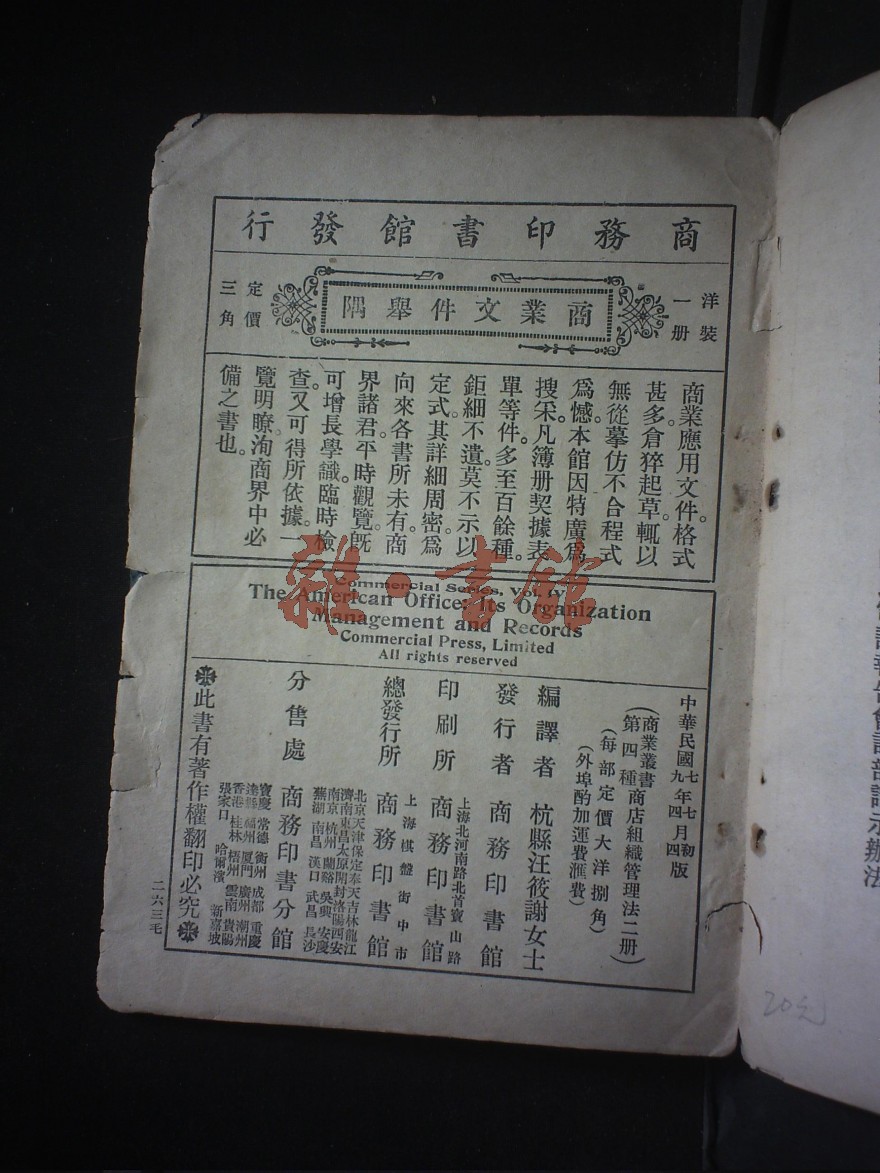 商務印書館發行
洋裝一册
商業文件舉隅
定價三角
商業應用文件。格式
甚多。倉猝起草。輒以
無從摹仿不合程式
爲憾。本館因特廣爲
搜宋。凡簿册契據表
單等件。多至百餘種。
鉅細不遺。莫不示以
定式。其詳細周密。爲
向來各書所未有。商
界諸君。平時觀覽。旣
可增長學識。臨時檢
查。又可得所依據。一
覽明瞭。洵商界中必
備之書也。
雜·書館
Commercial Series, Vol. IV
The American Office: Its Organization
Management and Records
Commercial Press, Limited
All rights reserved
中華民國七年七月初版
九年四月四版
(商業叢書第四種商店組織管理法二册)
(每部定價大洋捌角)
(外埠酌加運費滙費)
編譯者 杭縣汪筱謝女士
發行者 商務印書館
印刷所 上海北河南路北首寶山路 商務印書館
總發行所 上海棋盤街中市 商務印書館
分售處 商務印書分館
北京天津保定奉天吉林龍江
濟南東昌太原開封洛陽西安
南京 杭州 蘭谿 吳興 安慶
蕪湖 南昌 漢口 武昌 長沙
寶慶 常德 衡州 成都 重慶
達縣 福州 厦門 廣州 潮州
香港 桂林 梧州 雲南 貴陽
張家口 哈爾濱 新嘉坡
此書有著作權翻印必究
二六三毛
20元